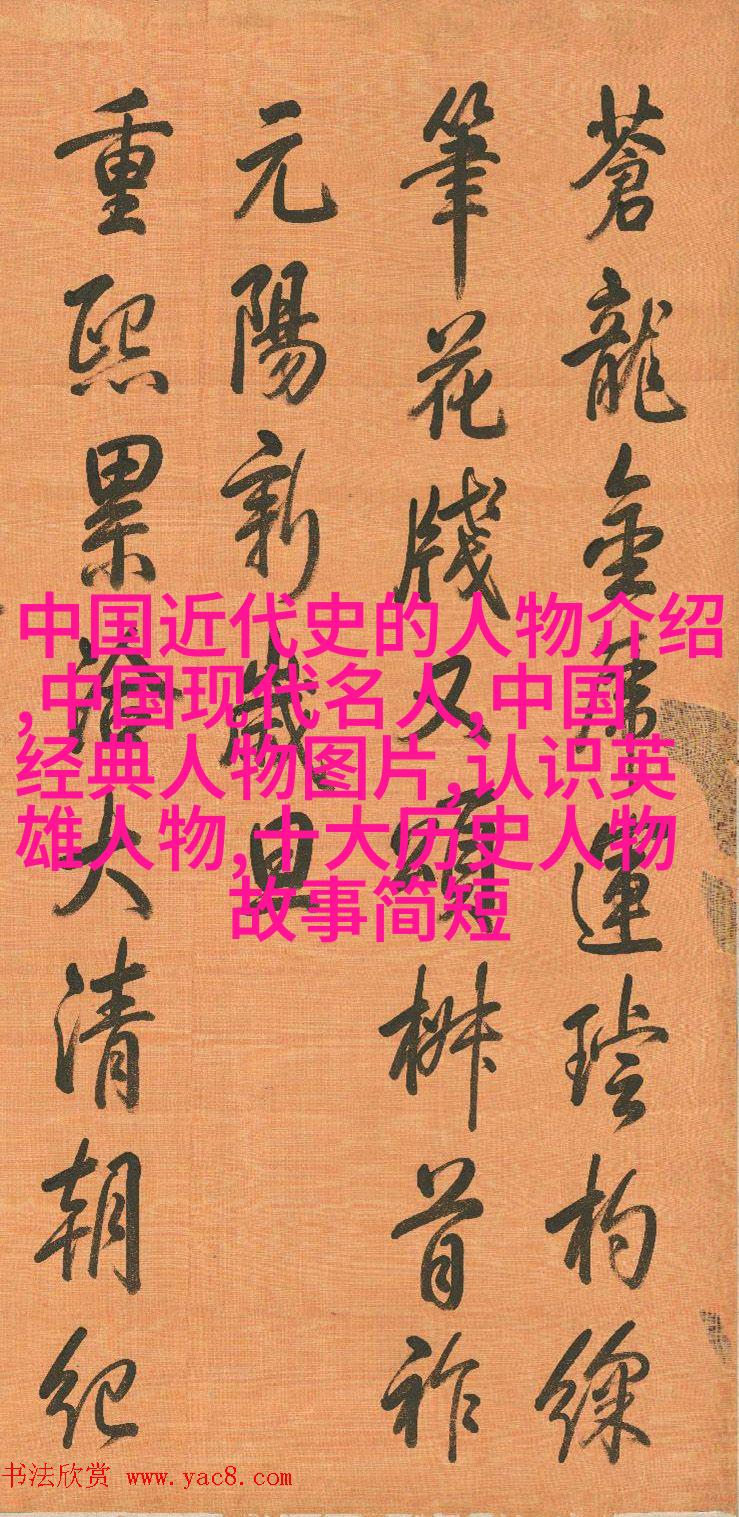 蒼龍金運璿杓
筆花牋又頌椒首祚
元陽新歲旦
重熙累洽大清朝紀
中国近代史的人物介绍
,中国现代名人,中国
经典人物图片,认识英
雄人物,十大历史人物
故事简短
书法欣赏 www.yac8.com